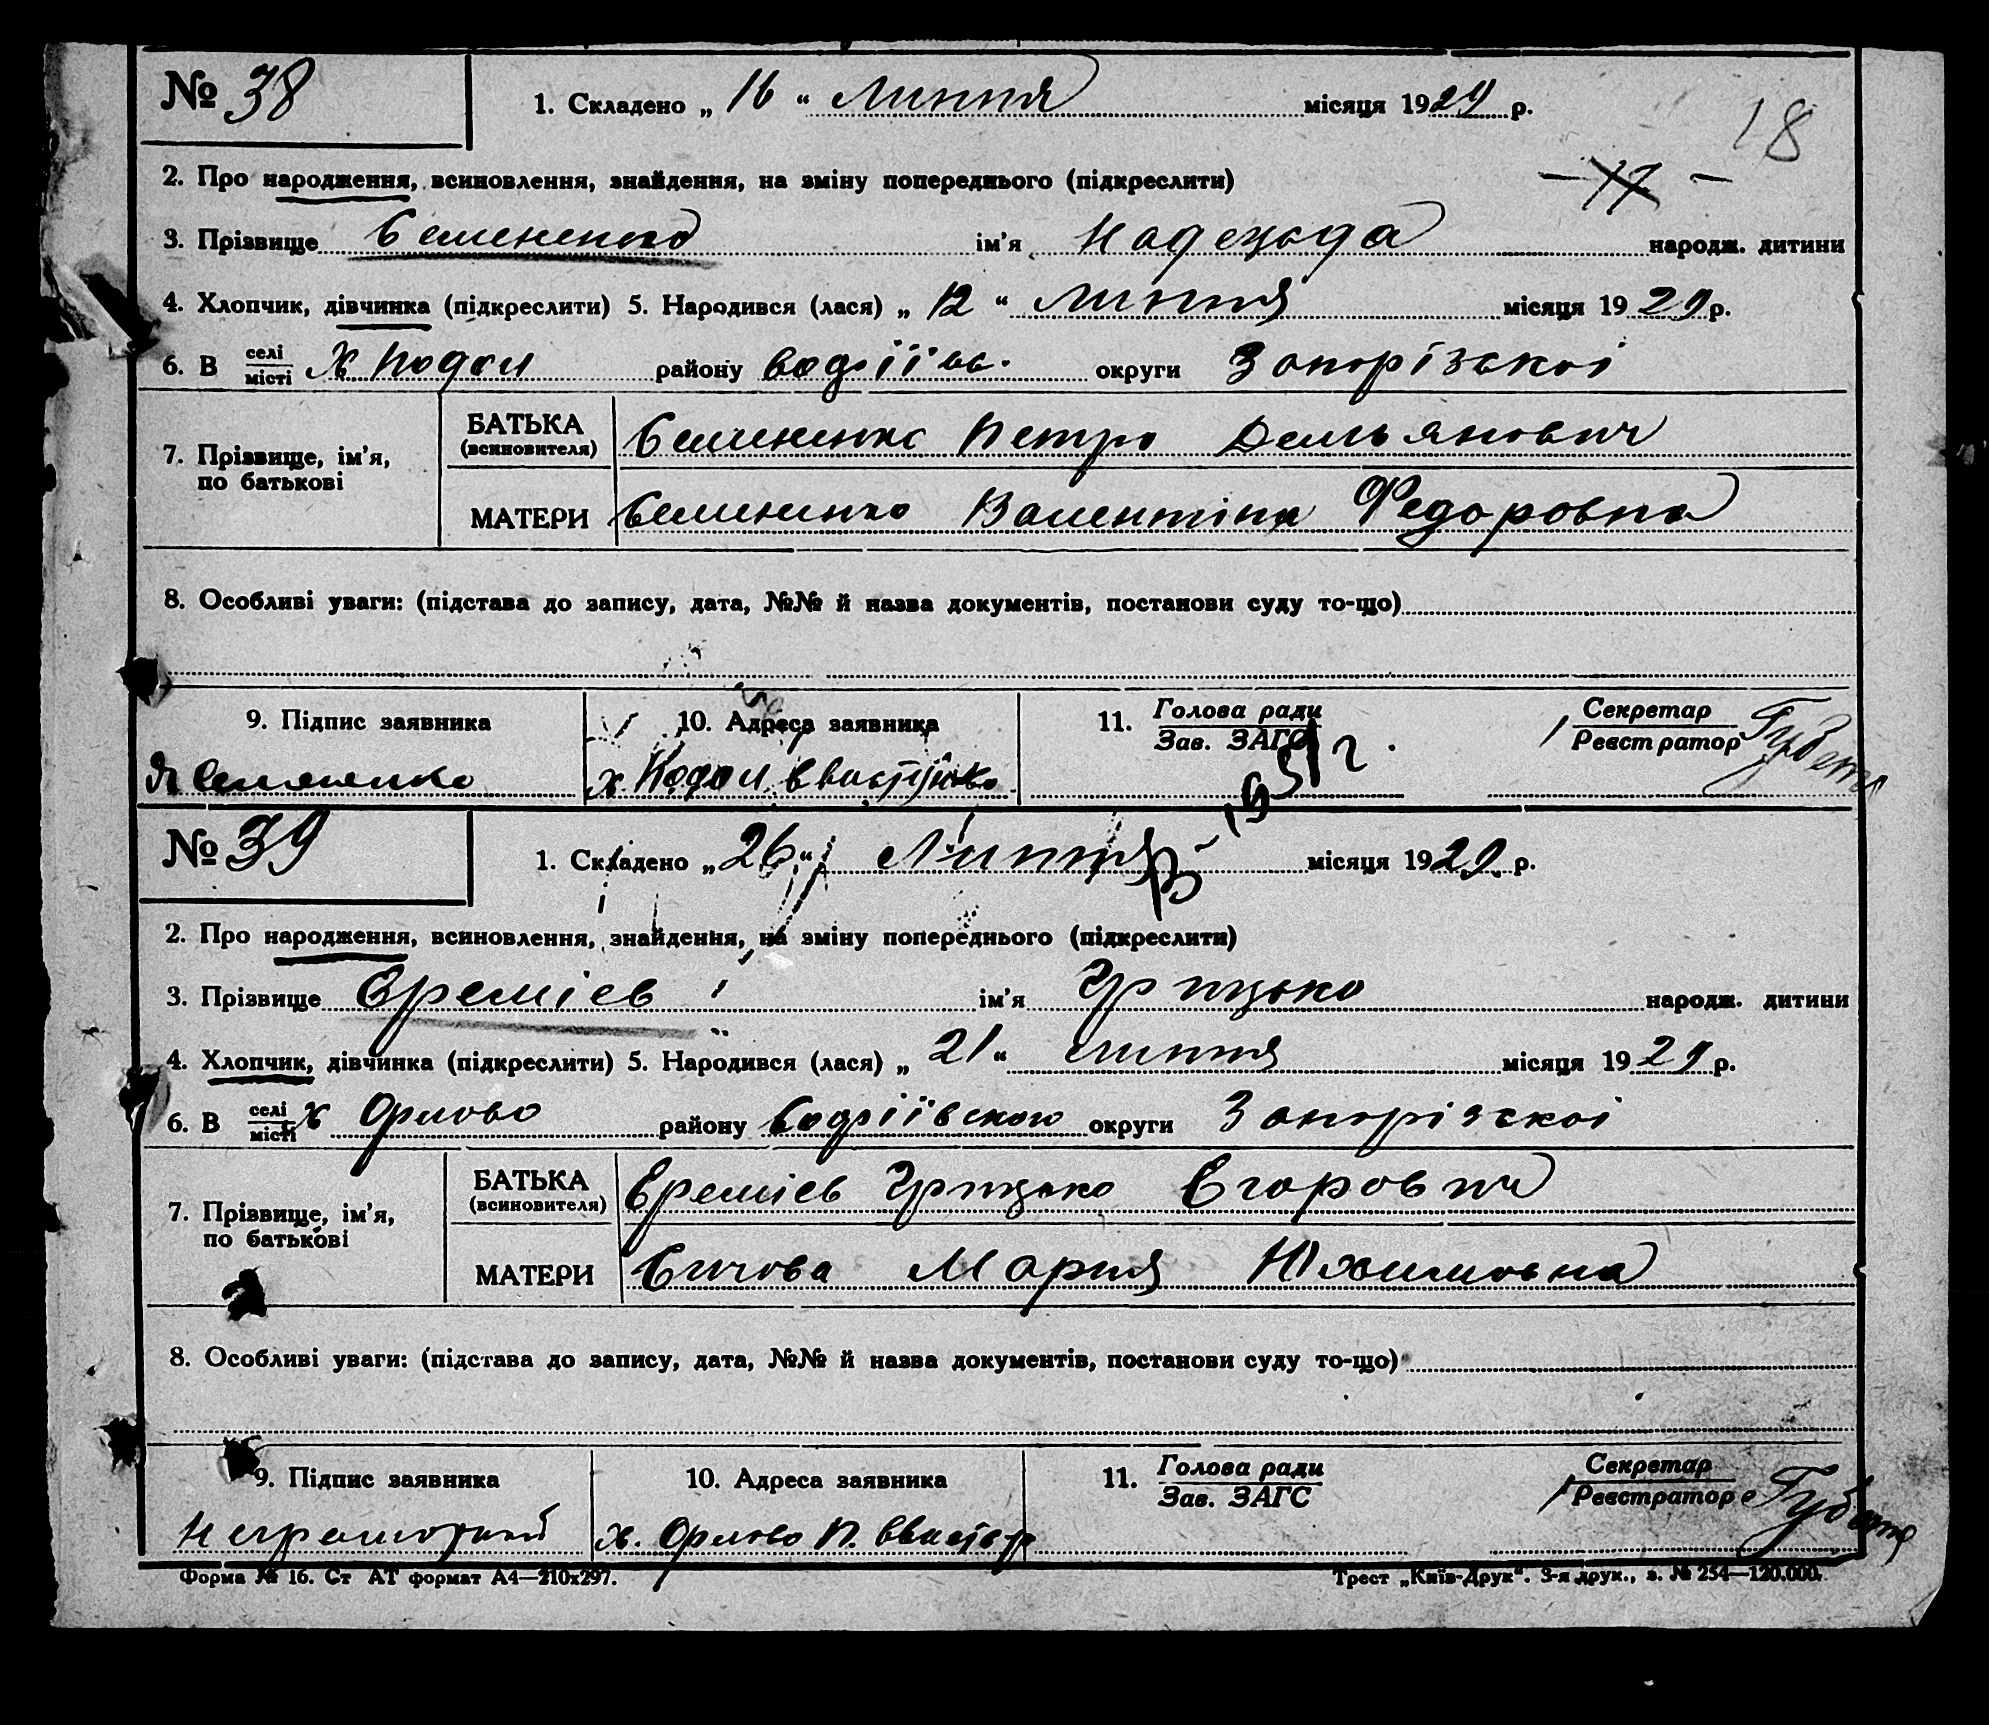 № 38 1. Складено „ 16 “ Липня місяця 1929 р.
18
- 17 -
2. Про народження, всиновлення, знайдення, на зміну попереднього (підкреслити)
3. Прізвище Семененко ім’я Надежда народж. дитини
4. Хлопчик, дівчинка (підкреслити) 5. Народився (лася) „ 12 “ Липня місяця 1929 р.
6. В селі/місті х Подол району округи Запорізькоі
7. Прізвище, ім’я, по батькові
БАТЬКА (всиновителя) Семененко Петро Демьянович
МАТЕРИ Семененко Валентіна Федоровна
8. Особливі уваги: (підстава до запису, дата, №№ й назва документів, постанови суду то-що)
9. Підпис заявника 10. Адреса заявника 11. Голова ради/Зав. ЗАГС Секретар/Реєстратор
Семененко х. Подол
№ 39 1. Складено „ 26 “ Липня місяця 1929. р.
2. Про народження, всиновлення, знайдення, на зміну попереднього (підкреслити)
3. Прізвище Єремієв ім’я Грицько народж. дитини
4. Хлопчик, дівчинка (підкреслити) 5. Народився (лася) „ 21 “ липня місяця 1929 р.
6. В селі/місті х Орлово району округи Запорізькоі
7. Прізвище, ім’я, по батькові
БАТЬКА (всиновителя) Єремієв Грицько Єгорович
МАТЕРИ Мария Юхимовна
8. Особливі уваги: (підстава до запису, дата, №№ й назва документів, постанови суду то-що)
9. Підпис заявника 10. Адреса заявника 11. Голова ради/Зав. ЗАГС Секретар/Реєстратор
Неграмотний х. Орлово
Форма № 16. Ст АТ формат А4—210x297. Трест „Київ-Друк“. 3-я друк., з. № 254—120.000.